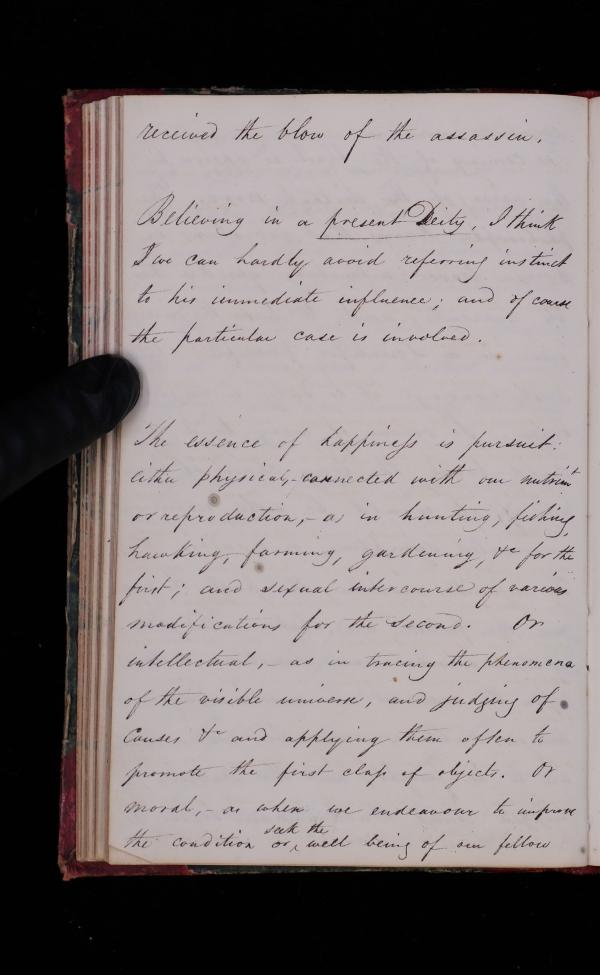 received the blow of the assassin.
Believing in a present Deity, I think
I we can hardly avoid referring instinct
to his immediate influence; and of course
the particular case is involved.
The essence of happiness is pursuit:
either physical,- connected with our nutrimt
or reproduction,- as in hunting, fishing,
hawking, farming, gardening, &c for the
first; and sexual intercourse of various
modifications for the second. Or
intellectual,- as in tracing the phenomena
of the visible universe, and judging of
causes &c and applying them often to
promote the first class of objects. Or
moral,- as when we endeavour to improve
seek the
the condition or well being of our fellow